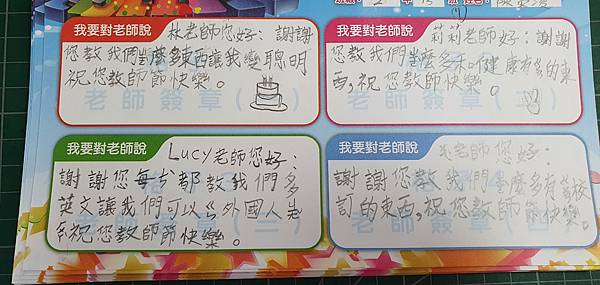 我要對老師說
林老師您好：謝謝
您教我們麼多東西讓我變聰明
祝您教師節快樂。
老師簽章
我要對老師說
莉莉老師好：謝謝
您教我們麼多和健康有的東
西,祝您教師節快樂。
老師簽章
我要對老師說
Lucy老師您好：
謝謝您每都教我們多
英文讓我們可以外國人
祝您教師節快樂。
我要對老師說
老師您好：
謝謝您教我們麼多有
的東西,祝您教師節快樂。